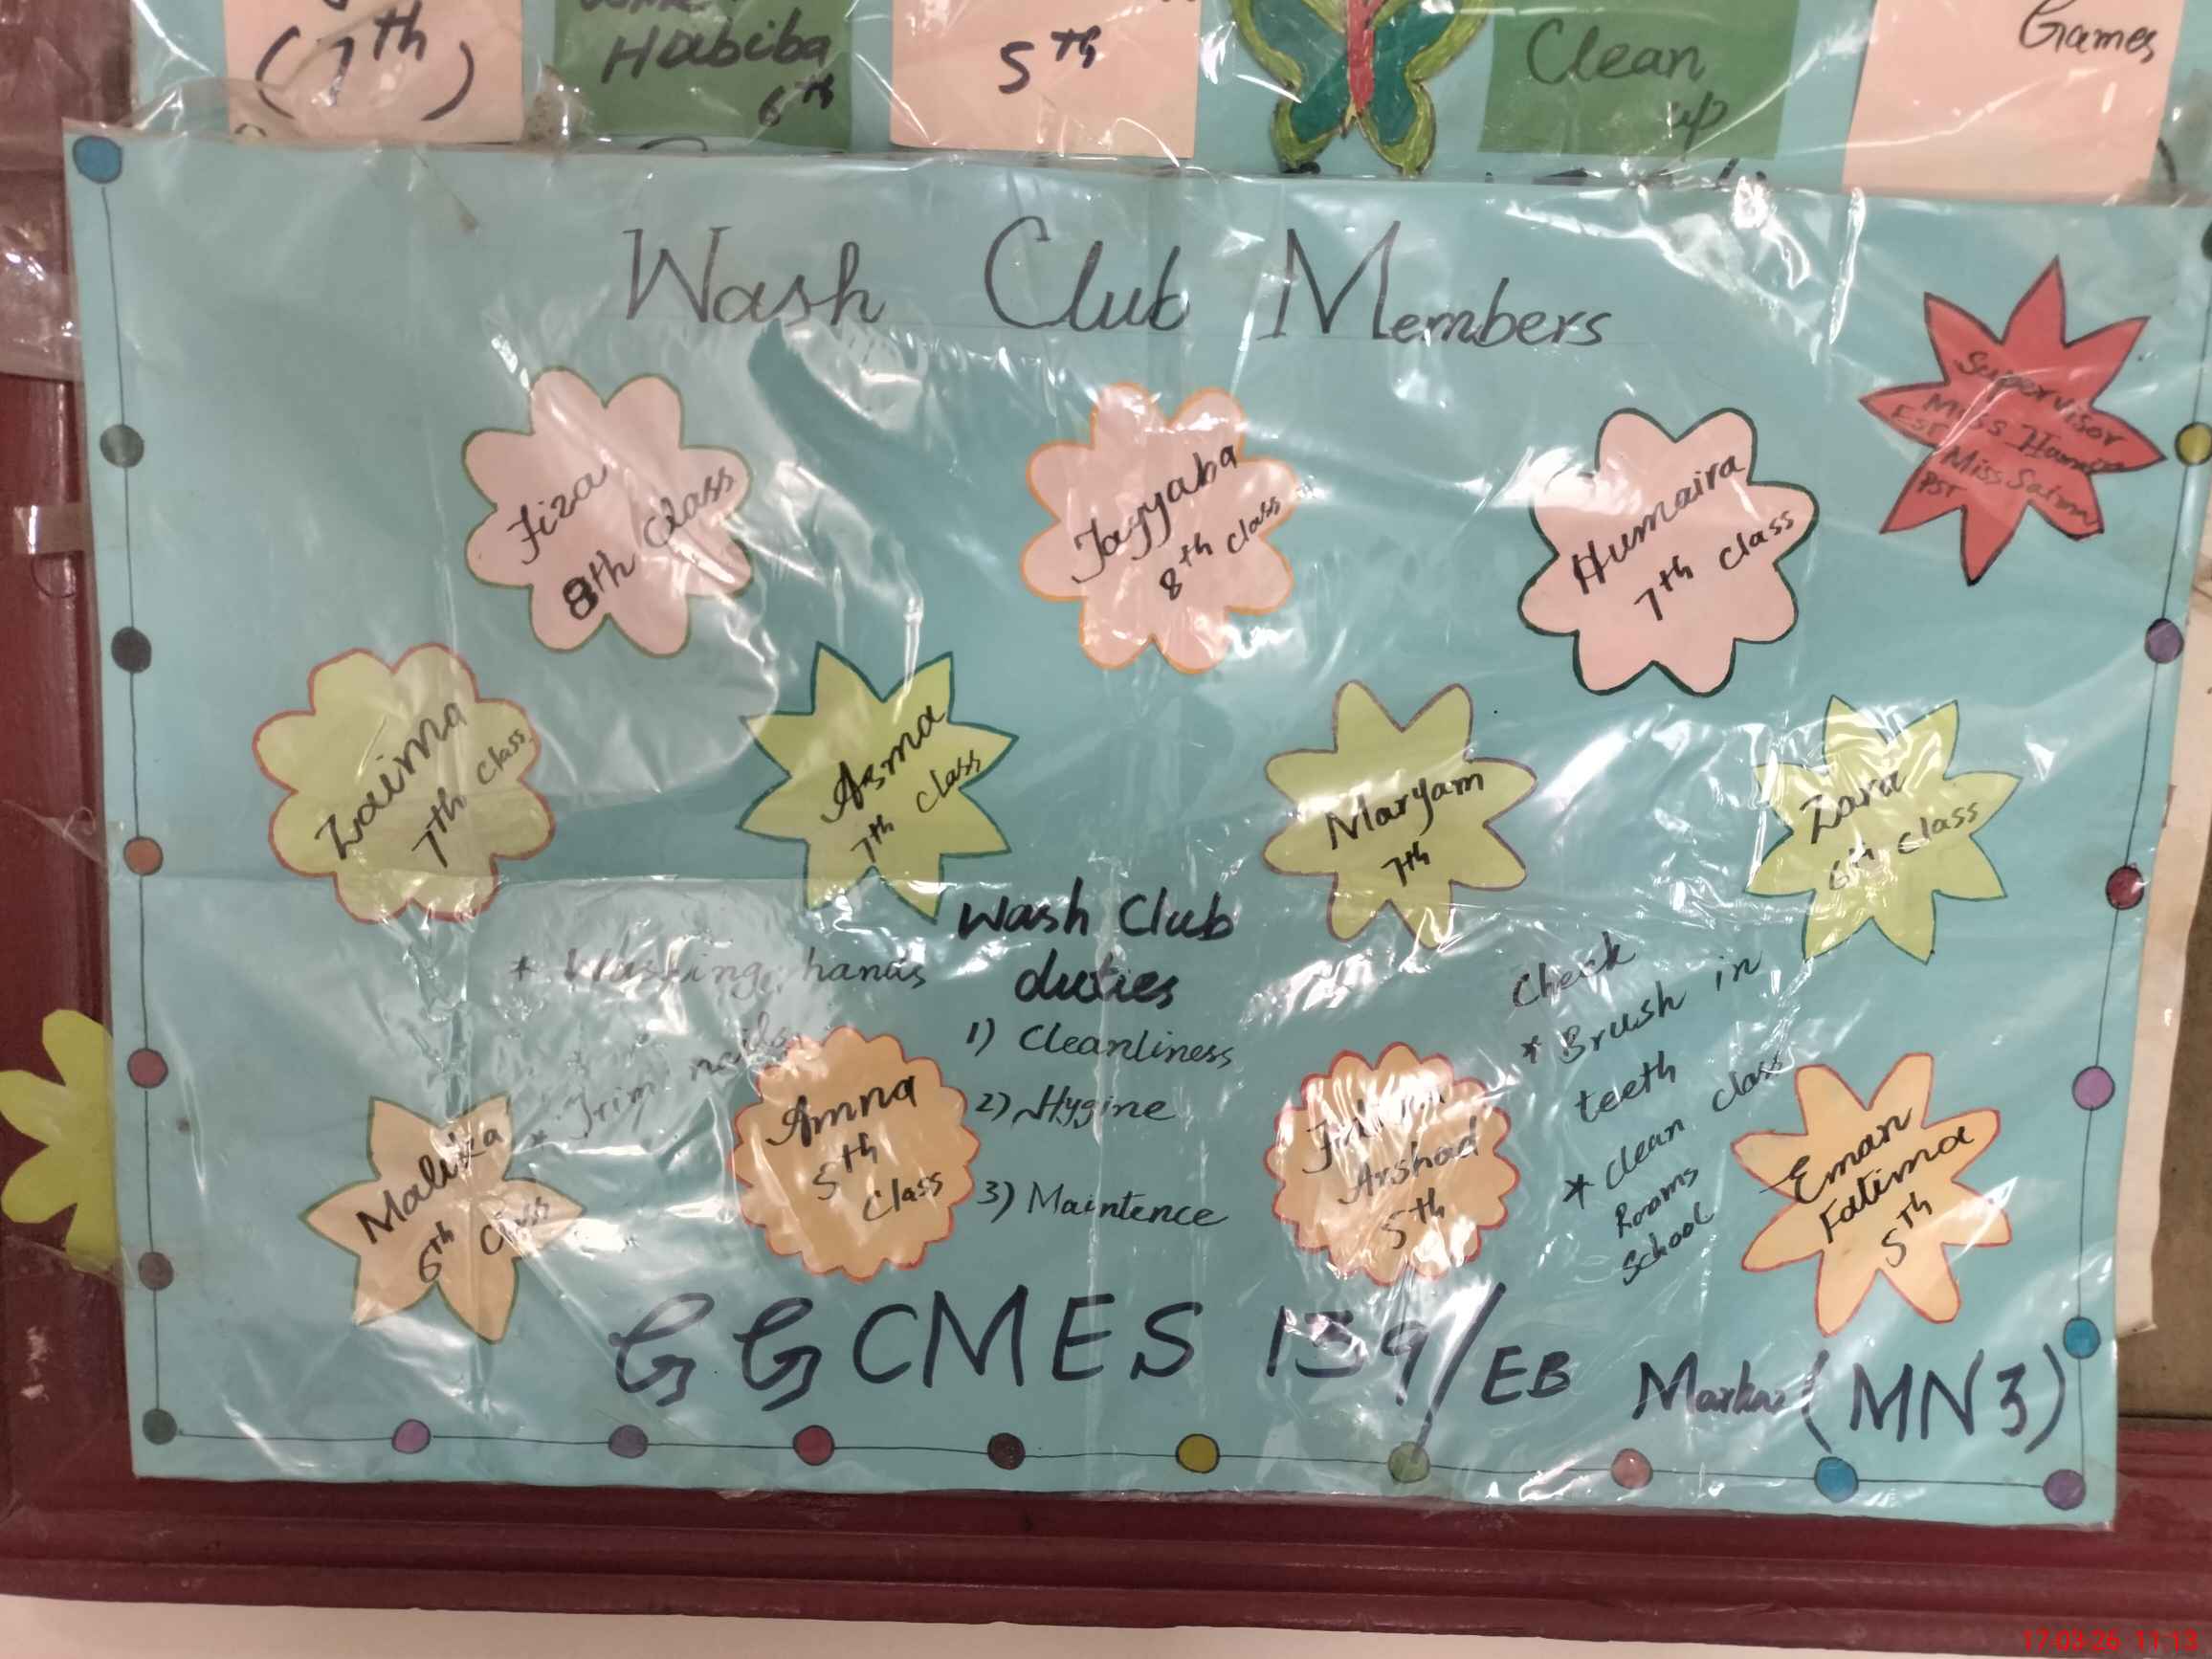 (7th)
Habiba
6th
5th
Clean
up
Games
Wash Club Members
Supervisor
Miss
EST
Miss Saim
PST
Fiza
8th Class
Tayyaba
8th class
Humaira
7th class
Zaima
7th class
Asma
7th class
Maryam
7th
Zara
6th class
Wash Club
duties
1) Cleanliness
2) Hygine
3) Maintence
* Washing hands
* Trim nails
Check
* Brush in
teeth
* Clean class
Rooms
School
Malika
6th class
Amna
5th
Class
Arshad
5th
Eman
Fatima
5th
GGCMES 139/EB Marka (MN3)
17-03-26 11:13